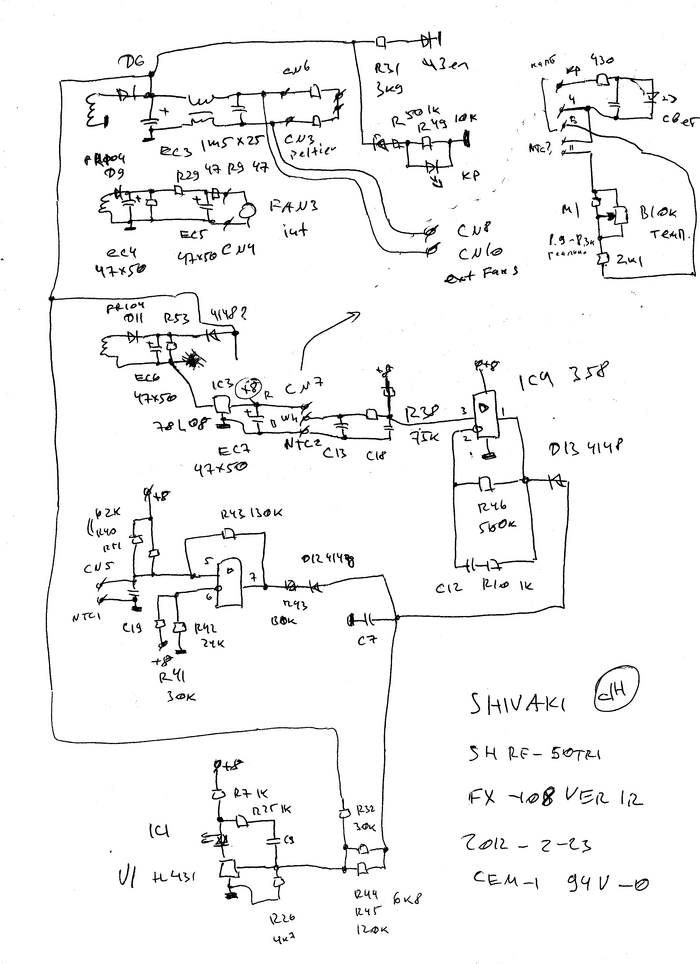 D6
R31
3K9
43en
CN6
EC3
1m5 x 25
CN3
Peltier
R50 1K
R49 10K
KP
PR104
D9
R29 47
R9 47
FAN3
int
EC4
47x50
EC5
47x50
CN4
CN8
CN10
ext Fans
430
KP
4
Свет
M1
Блок
темп.
2K1
PR104
D11
R53
4148?
EC6
47x50
IC3
+8
R
CN7
78L08
EC7
47x50
NTC2
C13
C18
+8
R38
75K
3
2
1
+8
IC4 358
D13 4148
R46
560K
C12
R10 1K
62K
R40
R51
+8
CN5
NTC1
C19
R43 130K
5
6
7
D12 4148
R43
R42
24K
+8
R41
30K
C7
SHIVAKI
SHRE-50TR1
FX-108 VER 12
2012-2-23
CEM-1 94V-0
+8
R7 1K
R25 1K
IC1
C9
U1 TL431
R26
4K7
R32
30K
R44 6K8
R45
120K